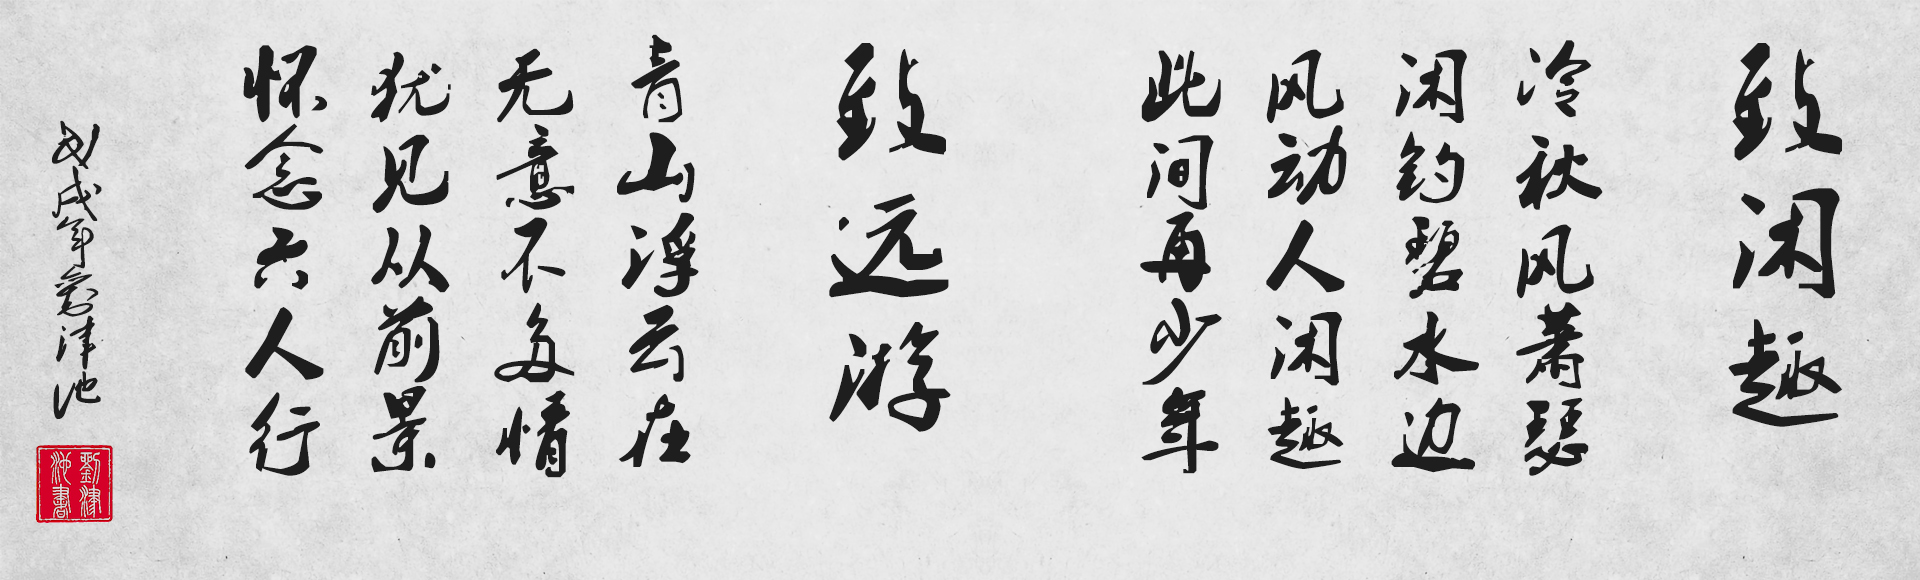 致闲趣
冷秋风萧瑟
闲钓碧水边
风动人闲趣
此间再少年
致远游
青山浮云在
无意不多情
犹见从前景
怀念六人行
戊戌年刘津池
劉津池書